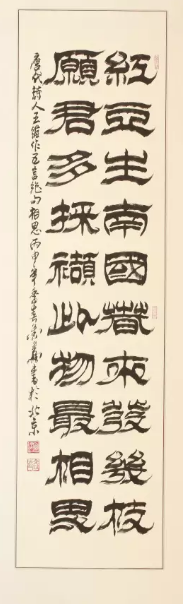 紅豆生南國春來發幾枝
願君多採擷此物最相思
唐代詩人王維作五言絕句相思丙申年書於北京